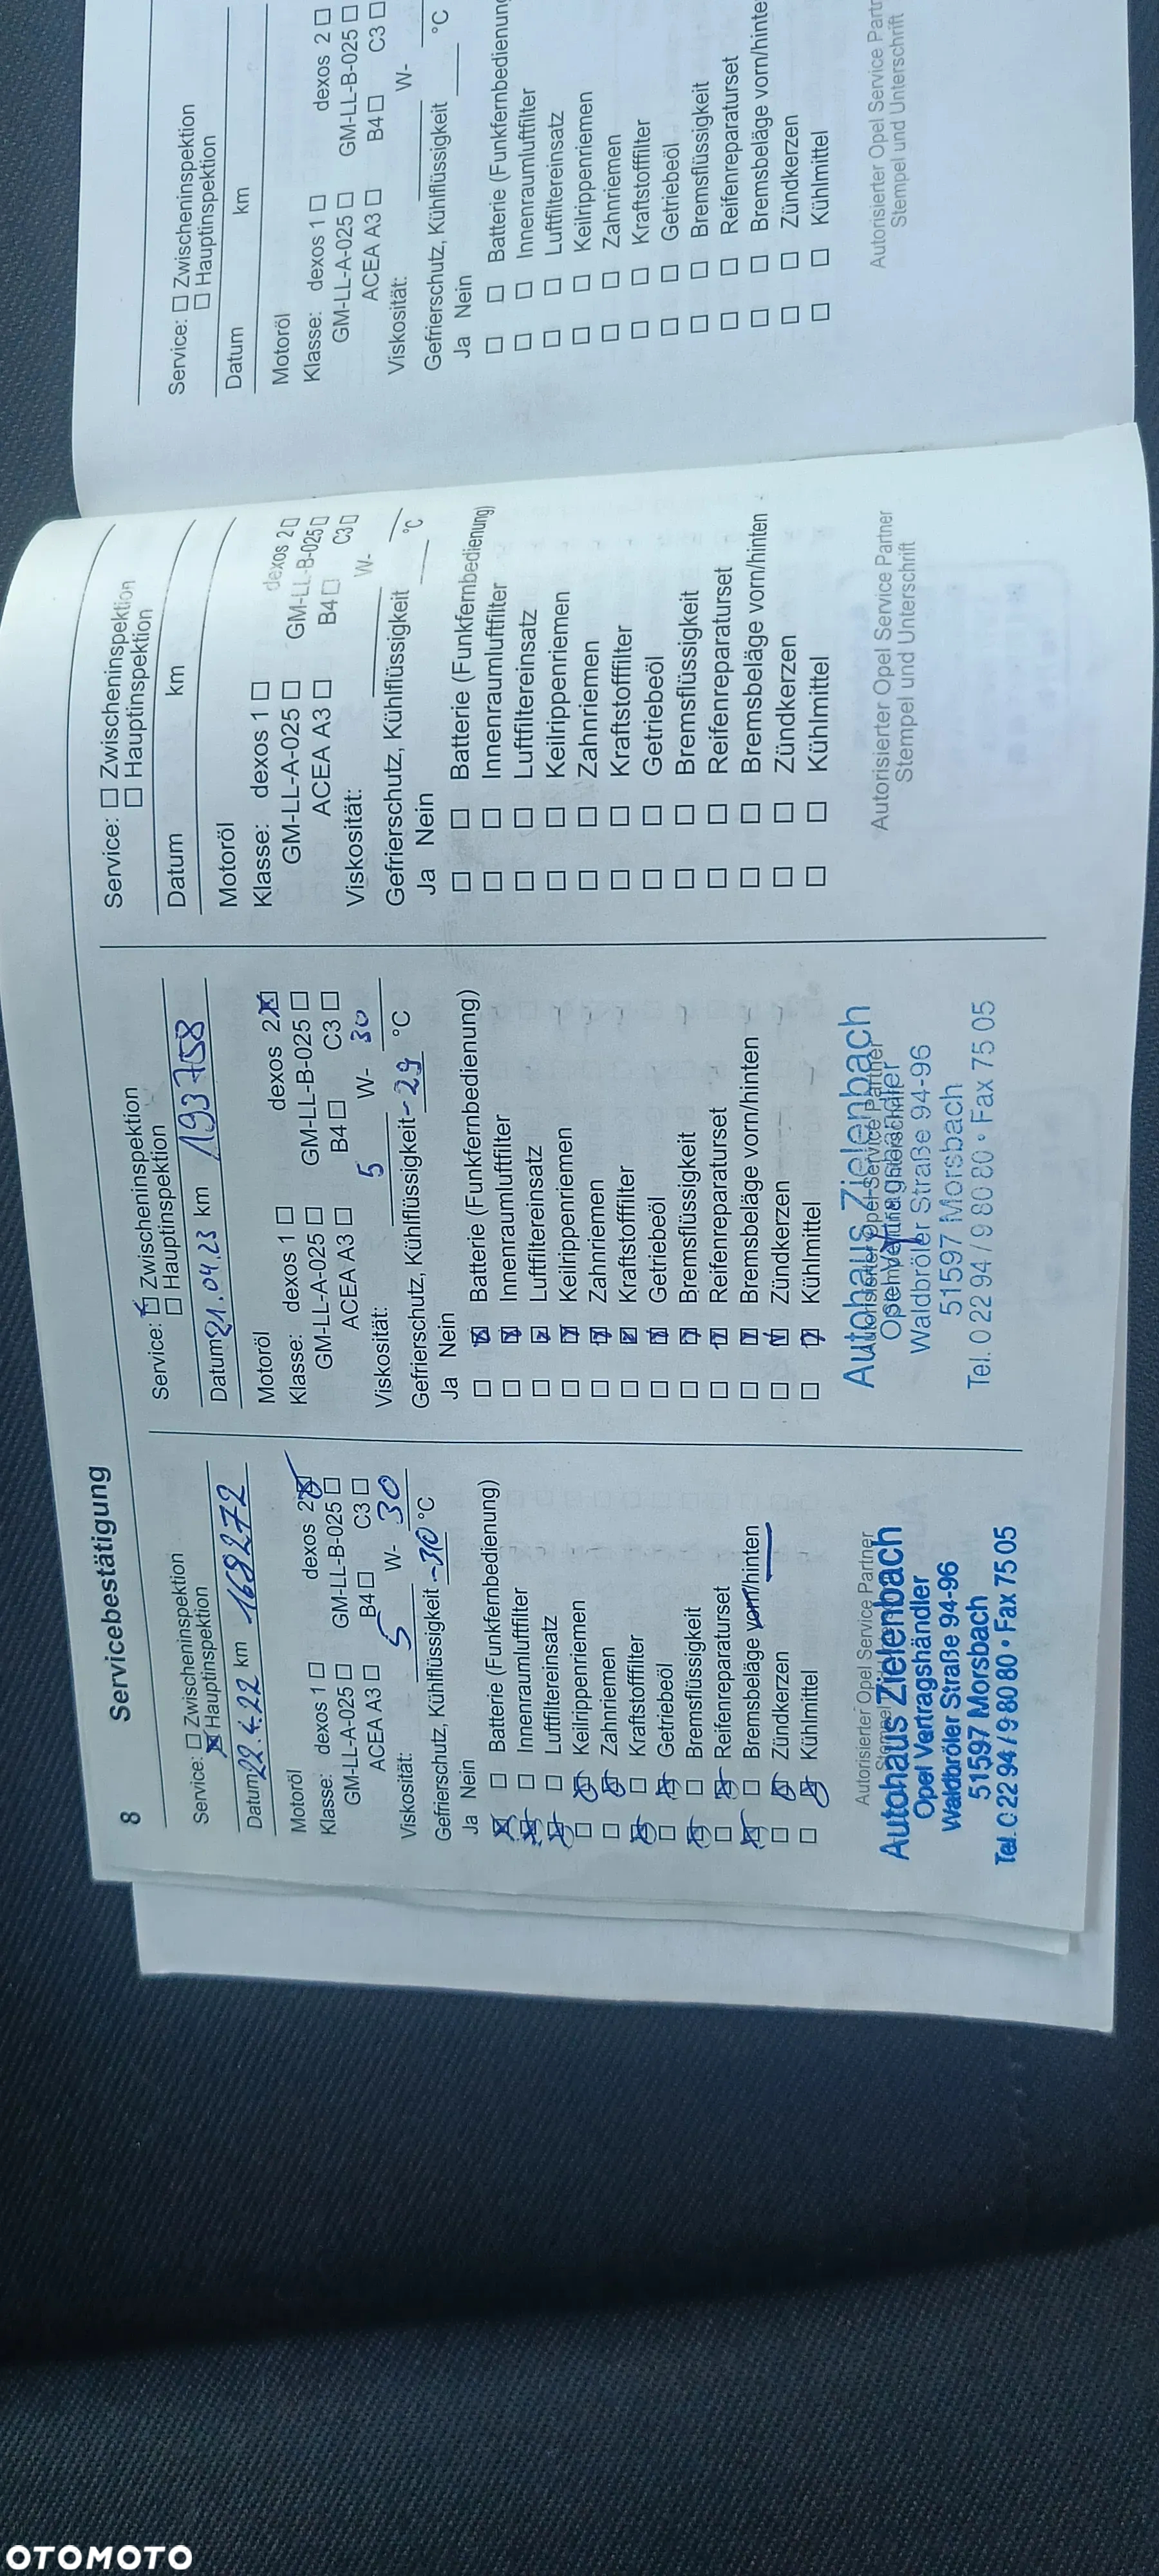 8 Servicebestätigung
Service: Zwischeninspektion
Hauptinspektion
Datum 22.4.22 km 168272
Motoröl
Klasse: dexos 1 dexos 2
GM-LL-A-025 GM-LL-B-025
ACEA A3 B4 C3
Viskosität: 5 W- 30
Gefrierschutz, Kühlflüssigkeit -30 °C
Ja Nein
Batterie (Funkfernbedienung)
Innenraumluftfilter
Luftfiltereinsatz
Keilrippenriemen
Zahnriemen
Kraftstofffilter
Getriebeöl
Bremsflüssigkeit
Reifenreparaturset
Bremsbeläge vorn/hinten
Zündkerzen
Kühlmittel
Autorisierter Opel Service Partner
Autohaus Zielenbach
Opel Vertragshändler
Waldbröler Straße 94-96
51597 Morsbach
Tel. 0 22 94 / 9 80 80 • Fax 75 05
Service: Zwischeninspektion
Hauptinspektion
Datum 21.04.23 km 193758
Motoröl
Klasse: dexos 1 dexos 2
GM-LL-A-025 GM-LL-B-025
ACEA A3 B4 C3
Viskosität: 5 W- 30
Gefrierschutz, Kühlflüssigkeit -29 °C
Ja Nein
Batterie (Funkfernbedienung)
Innenraumluftfilter
Luftfiltereinsatz
Keilrippenriemen
Zahnriemen
Kraftstofffilter
Getriebeöl
Bremsflüssigkeit
Reifenreparaturset
Bremsbeläge vorn/hinten
Zündkerzen
Kühlmittel
Autohaus Zielenbach
Autorisierter Opel Service Partner
Opel Vertragshändler
Waldbröler Straße 94-96
51597 Morsbach
Tel. 0 22 94 / 9 80 80 • Fax 75 05
Service: Zwischeninspektion
Hauptinspektion
Datum km
Motoröl
Klasse: dexos 1 dexos 2
GM-LL-A-025 GM-LL-B-025
ACEA A3 B4 C3
Viskosität: W-
Gefrierschutz, Kühlflüssigkeit °C
Ja Nein
Batterie (Funkfernbedienung)
Innenraumluftfilter
Luftfiltereinsatz
Keilrippenriemen
Zahnriemen
Kraftstofffilter
Getriebeöl
Bremsflüssigkeit
Reifenreparaturset
Bremsbeläge vorn/hinten
Zündkerzen
Kühlmittel
Autorisierter Opel Service Partner
Stempel und Unterschrift
Service: Zwischeninspektion
Hauptinspektion
Datum km
Motoröl
Klasse: dexos 1 dexos 2
GM-LL-A-025 GM-LL-B-025
ACEA A3 B4 C3
Viskosität: W-
Gefrierschutz, Kühlflüssigkeit °C
Ja Nein
Batterie (Funkfernbedienung
Innenraumluftfilter
Luftfiltereinsatz
Keilrippenriemen
Zahnriemen
Kraftstofffilter
Getriebeöl
Bremsflüssigkeit
Reifenreparaturset
Bremsbeläge vorn/hinte
Zündkerzen
Kühlmittel
Autorisierter Opel Service Partn
Stempel und Unterschrift
OTOMOTO